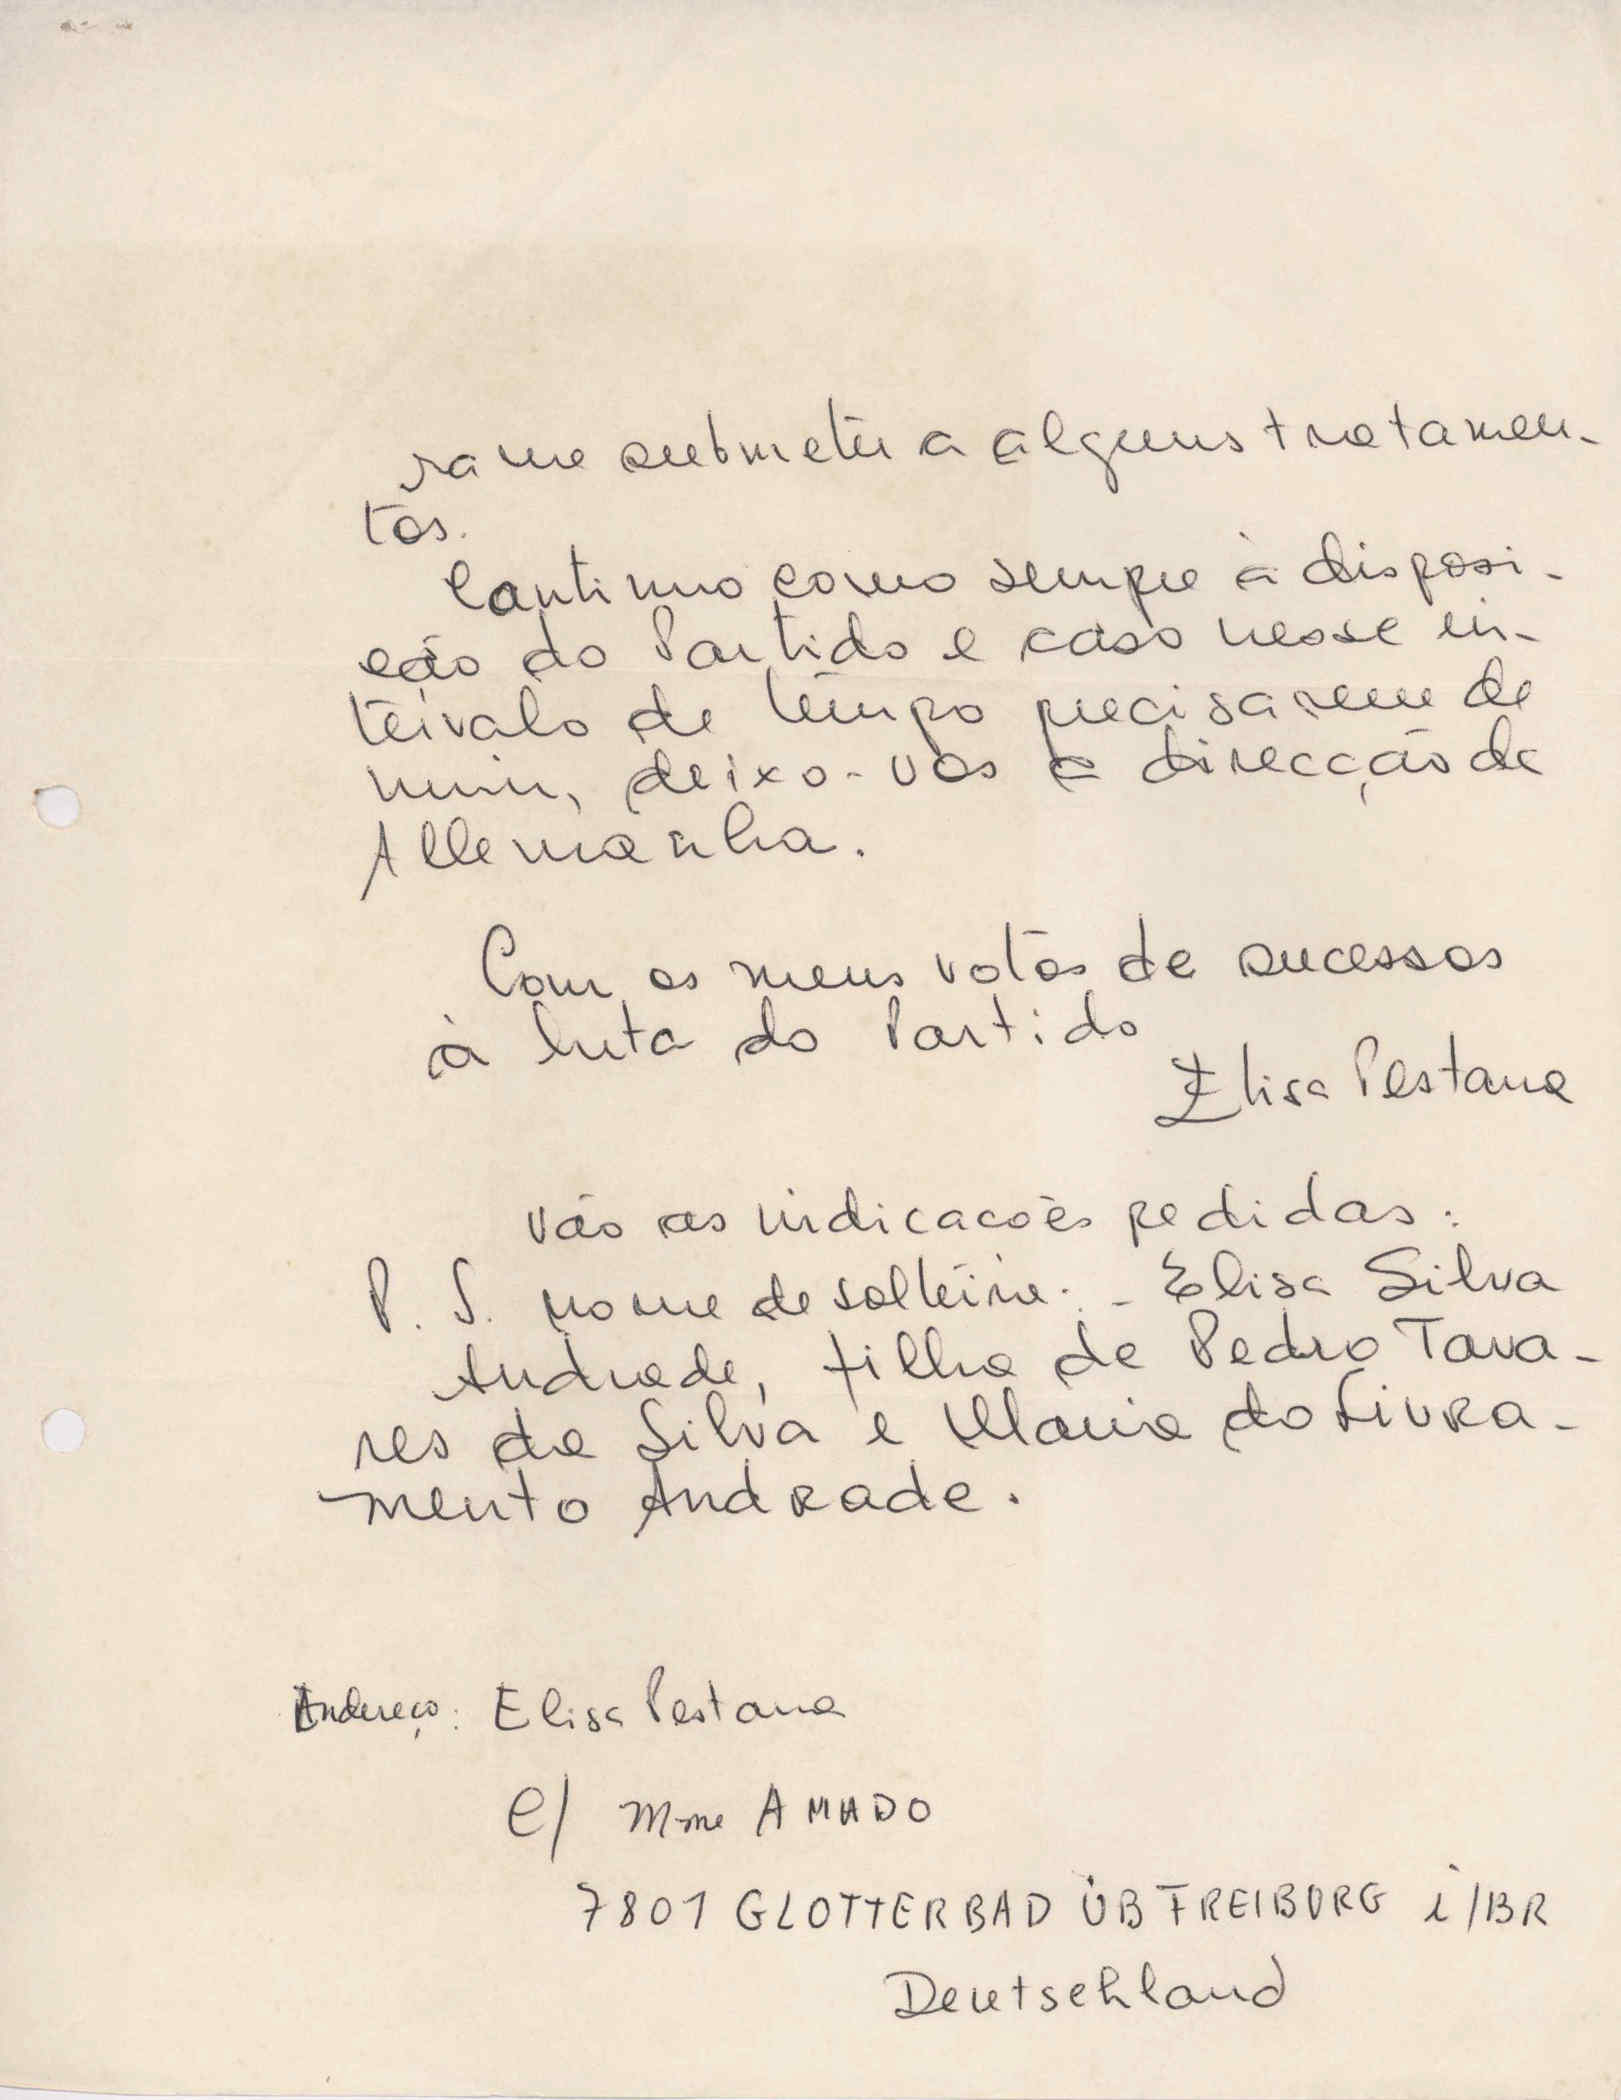 ra me submeter a alguns tratamen-
tos.
Continuo como sempre à disposi-
cão do Partido e caso nesse in-
tervalo de tempo precisarem de
mim, deixo-vos a direcção de
Allemanha.
Com os meus votos de sucessos
à luta do Partido
Elisa Pestana
Vão as indicacões pedidas:
P. S. nome de solteira: - Elisa Silva
Andrade, filha de Pedro Tava-
res da Silva e Maria do Livra-
mento Andrade.
Endereço: Elisa Pestana
c/ Mme AMADO
7801 GLOTTERBAD ÜB FREIBURG i/BR
Deutschland